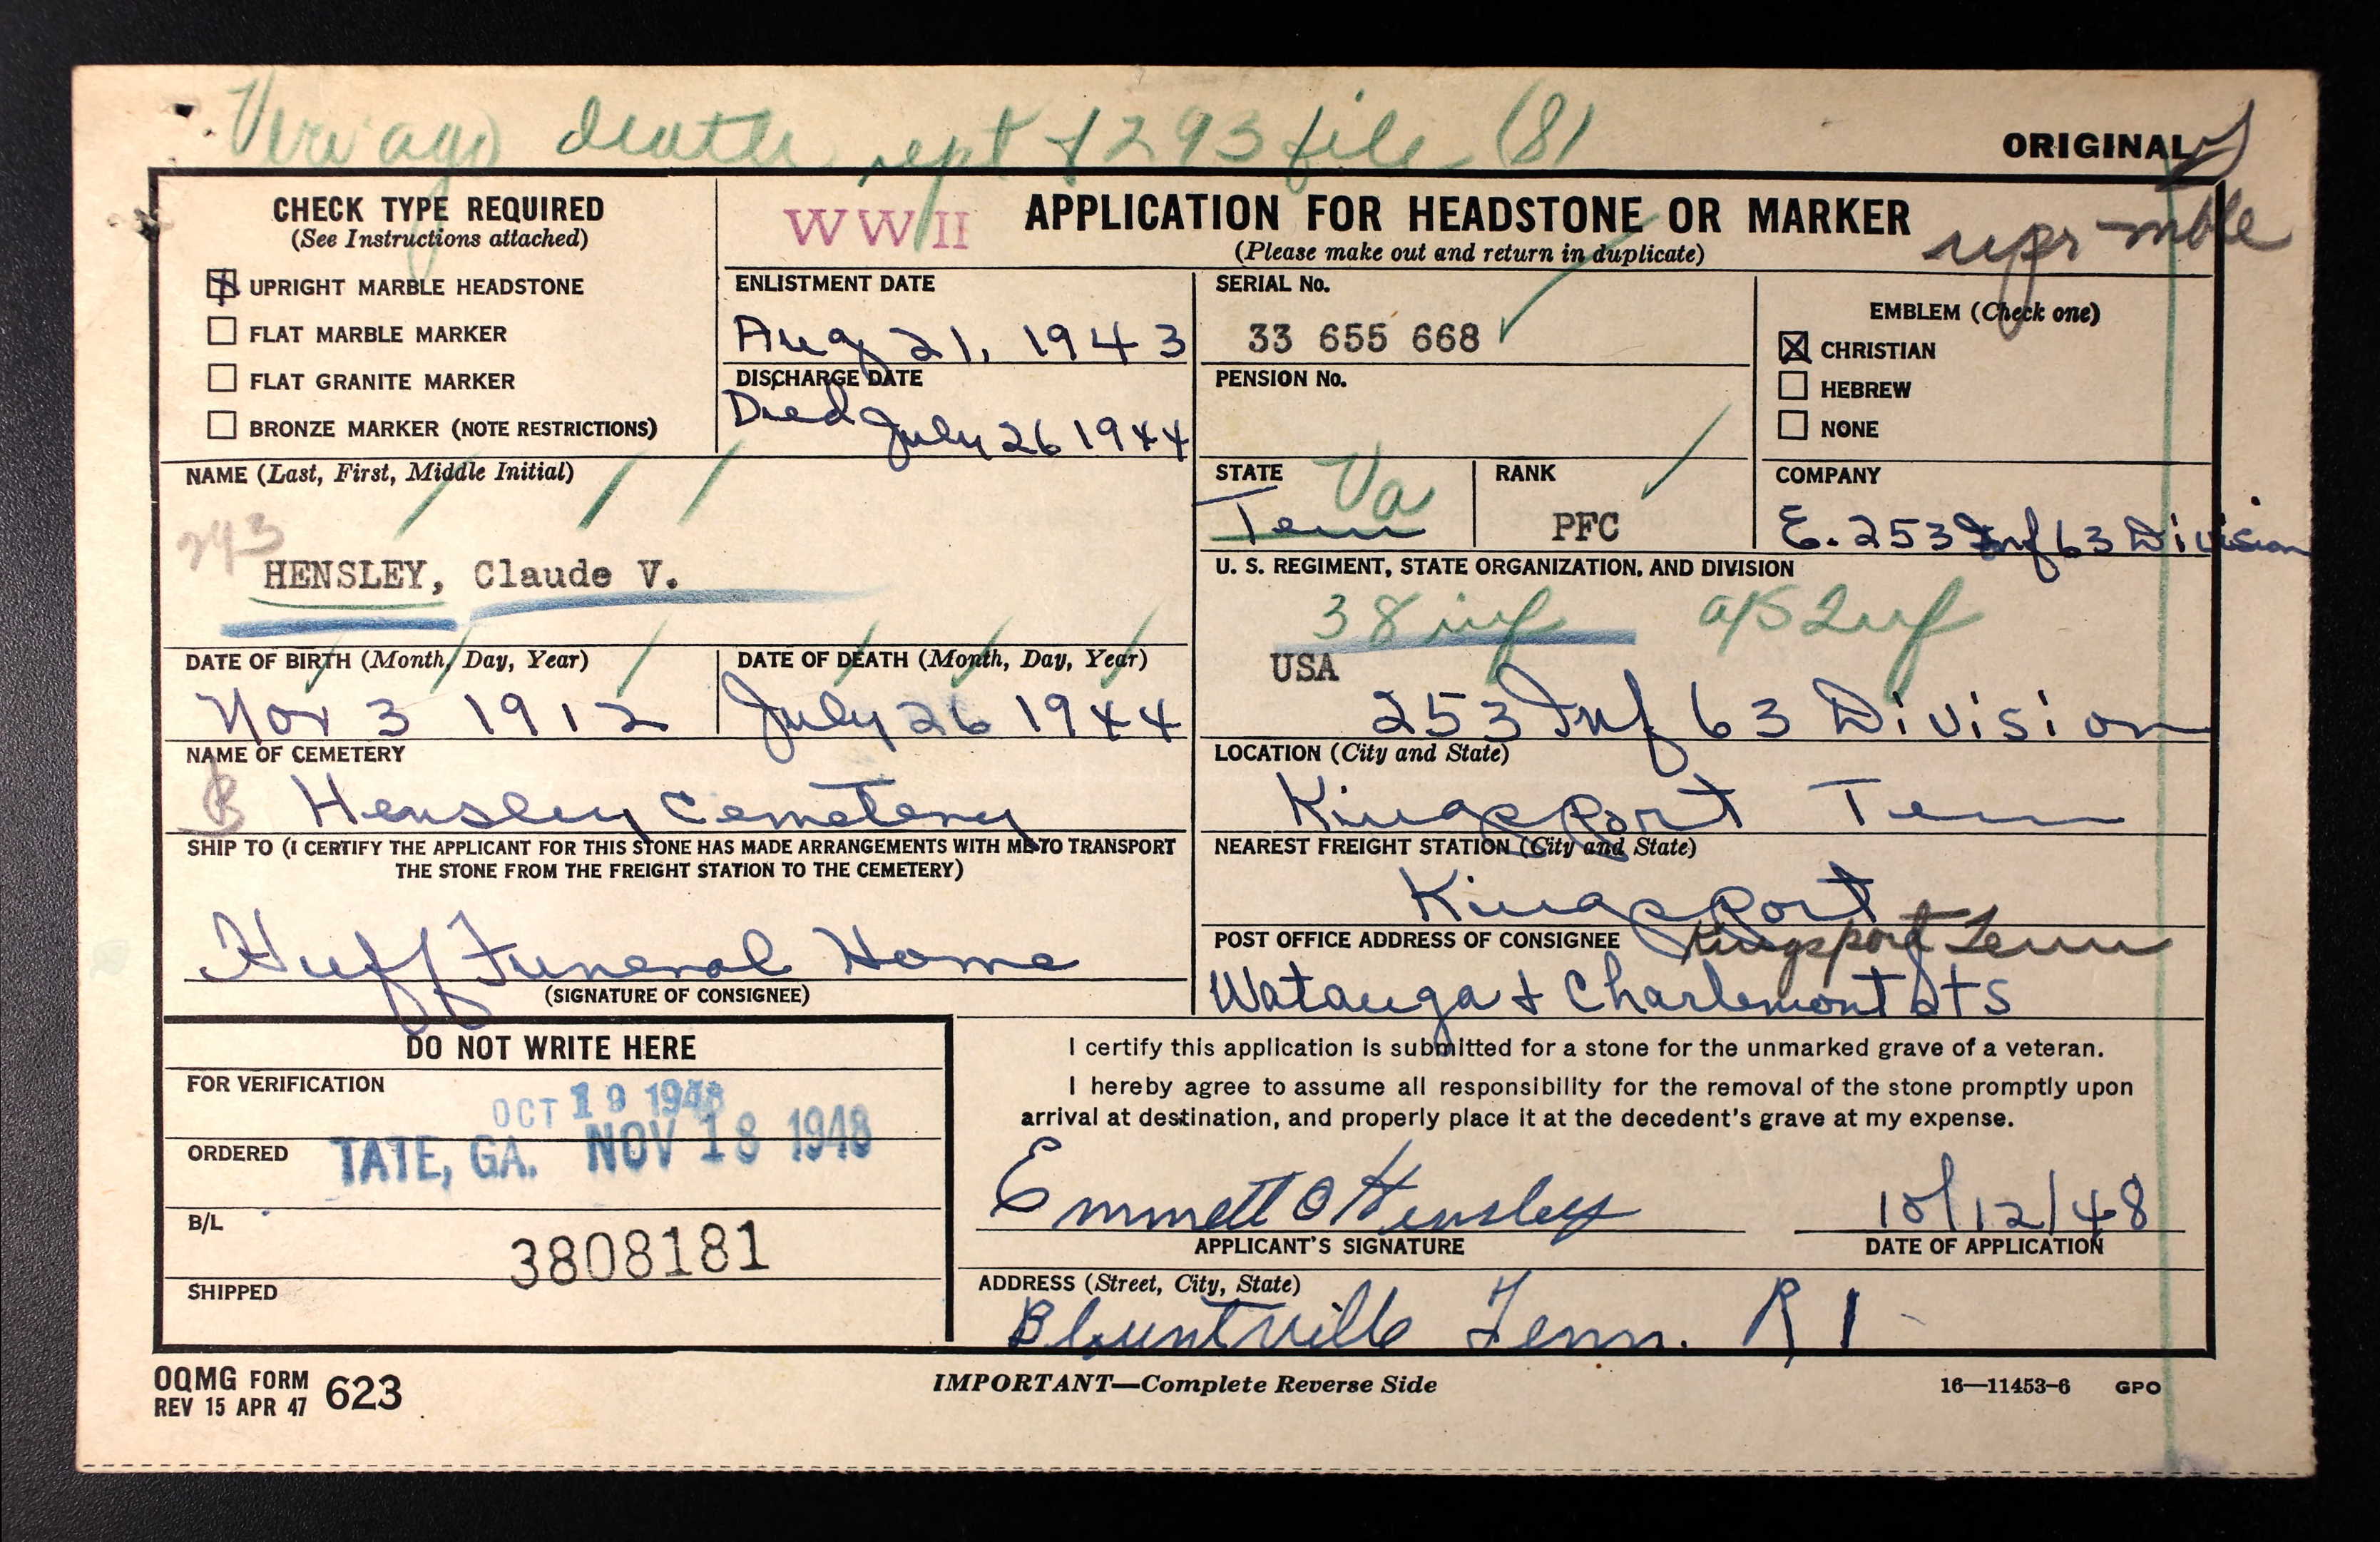 Veri ago death rept & 293 file (8)
ORIGINAL
CHECK TYPE REQUIRED
(See Instructions attached)
☒ UPRIGHT MARBLE HEADSTONE
☐ FLAT MARBLE MARKER
☐ FLAT GRANITE MARKER
☐ BRONZE MARKER (NOTE RESTRICTIONS)
WWII
APPLICATION FOR HEADSTONE OR MARKER
(Please make out and return in duplicate)
upr mble
ENLISTMENT DATE
Aug 21, 1943
DISCHARGE DATE
Died July 26 1944
SERIAL No.
33 655 668
PENSION No.
EMBLEM (Check one)
☒ CHRISTIAN
☐ HEBREW
☐ NONE
NAME (Last, First, Middle Initial)
293
HENSLEY, Claude V.
STATE
Va
Tenn
RANK
PFC
COMPANY
E. 253 Inf 63 Division
U. S. REGIMENT, STATE ORGANIZATION, AND DIVISION
38 inf
USA
253 Inf 63 Division
DATE OF BIRTH (Month, Day, Year)
Nov 3 1912
DATE OF DEATH (Month, Day, Year)
July 26 1944
NAME OF CEMETERY
B Hensley Cemetery
LOCATION (City and State)
Kingsport Tenn
SHIP TO (I CERTIFY THE APPLICANT FOR THIS STONE HAS MADE ARRANGEMENTS WITH ME TO TRANSPORT
THE STONE FROM THE FREIGHT STATION TO THE CEMETERY)
Huff Funeral Home
(SIGNATURE OF CONSIGNEE)
NEAREST FREIGHT STATION (City and State)
Kingsport
POST OFFICE ADDRESS OF CONSIGNEE
Kingsport Tenn
Watauga & Charlemont Sts
DO NOT WRITE HERE
FOR VERIFICATION
OCT 19 1948
ORDERED
TATE, GA. NOV 18 1948
B/L
3808181
SHIPPED
I certify this application is submitted for a stone for the unmarked grave of a veteran.
I hereby agree to assume all responsibility for the removal of the stone promptly upon
arrival at destination, and properly place it at the decedent's grave at my expense.
Emmett O Hensley
10/12/48
APPLICANT'S SIGNATURE
DATE OF APPLICATION
ADDRESS (Street, City, State)
Blountville Tenn. R 1
OQMG FORM 623
REV 15 APR 47
IMPORTANT—Complete Reverse Side
16—11453-6 GPO